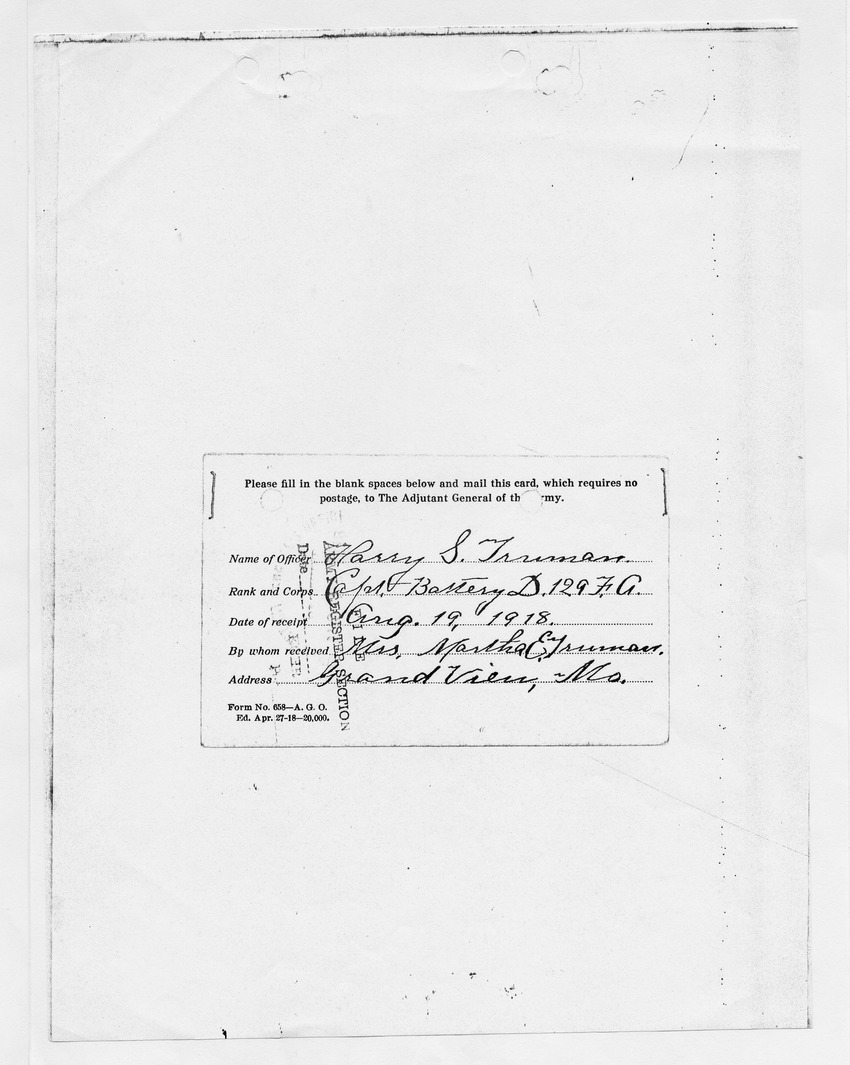 Please fill in the blank spaces below and mail this card, which requires no
postage, to The Adjutant General of th rmy.
Name of Officer Harry S. Truman.
Rank and Corps. Capt. Battery D. 129 F. A.
Date of receipt Aug. 19, 1918.
By whom received Mrs. Martha E. Truman.
Address Grand View, Mo.
Form No. 658—A. G. O.
Ed. Apr. 27-18—20,000.
Date
REGISTER SECTION